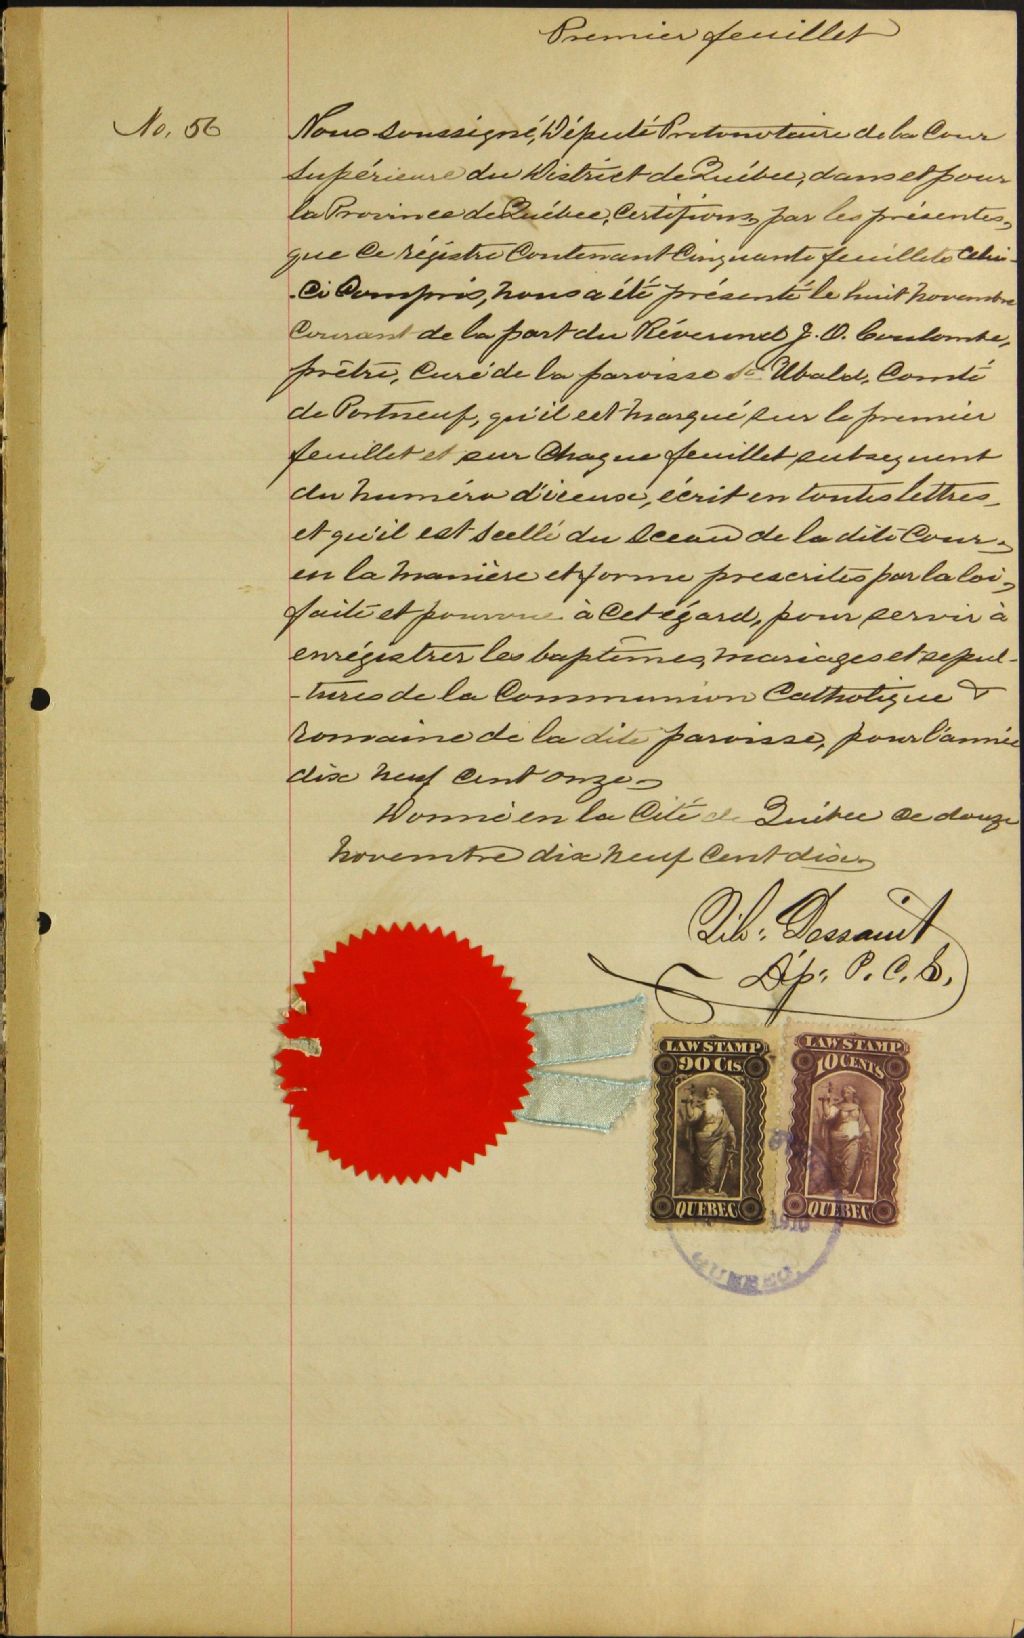 Premier feuillet
No. 56
Nous soussigné, Député Protonotaire de la Cour
Supérieure du District de Québec, dans et pour
la Province de Québec, Certifions par les présentes,
que ce régistre contenant Cinquante feuillets celui-
-ci Compris, nous a été présenté le huit novembre
Courant de la part du Révérend J. O. Coulombe,
prêtre, Curé de la paroisse St Ubald, Comté
de Portneuf, qu'il est marqué sur le premier
feuillet et sur chaque feuillet subsequent
du numéro d'iceux, écrit en toutes lettres,
et qu'il est scellé du sceau de la dite Cour,
en la manière et forme prescrites par la loi,
faite et pourvue à cet égard, pour servir à
enrégistrer les baptêmes, mariages et sépul-
-tures de la Communion Catholique &
romaine de la dite paroisse, pour l'année
dix neuf cent onze.
Donné en la Cité de Québec ce douze
novembre dix neuf cent dix.
Dessault
Dép. P. C. S.
LAW STAMP
90 Cts.
QUEBEC
LAW STAMP
10 CENTS
QUEBEC
1910
QUEBEC